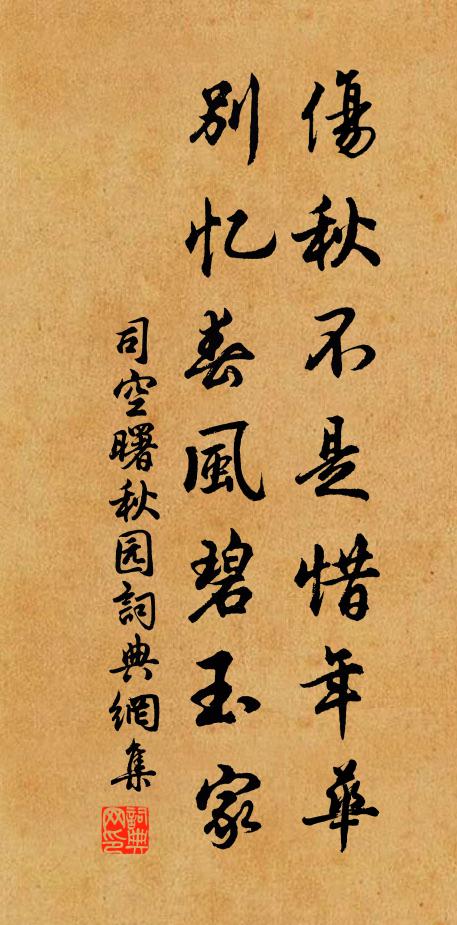 傷秋不是惜年華
別忆春風碧玉家
司空曙秋园詞典網集
詞典网印